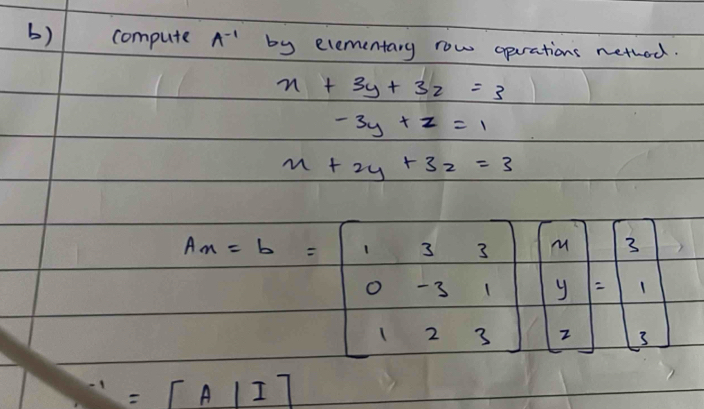 b) compute A⁻¹ by elementary row operations method.
x + 3y + 3z = 3
-3y + z = 1
x + 2y + 3z = 3
Ax = b = [ 1 3 3 ] [ x ] [ 3 ]
[ 0 -3 1 ] [ y ] = [ 1 ]
[ 1 2 3 ] [ z ] [ 3 ]
⁻¹ = [ A | I ]